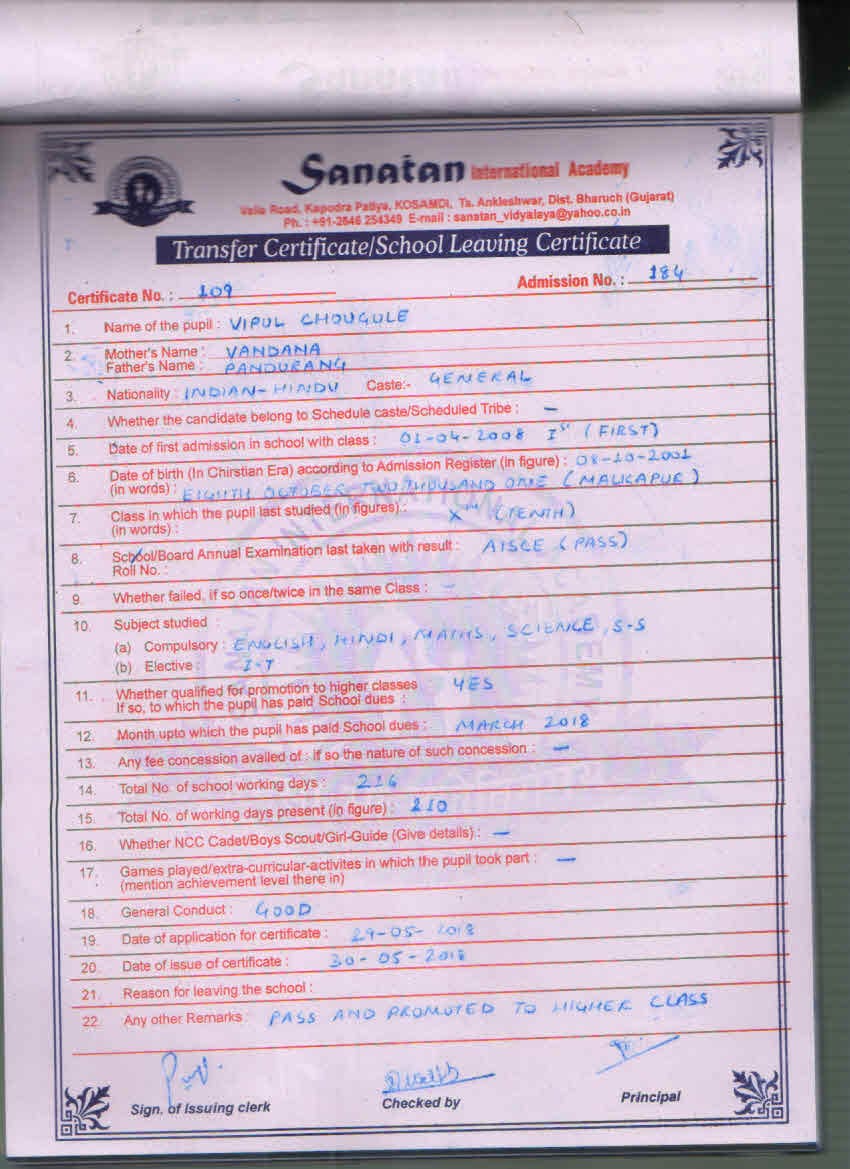 Sanatan International Academy
Valia Road, Kapodra Patiya, KOSAMDI, Ta. Ankleshwar, Dist. Bharuch (Gujarat)
Ph. : +91-2646 254349 E-mail : sanatan_vidyalaya@yahoo.co.in
Transfer Certificate/School Leaving Certificate
Certificate No. : 109 Admission No. : 184
1. Name of the pupil : VIPUL CHOUGULE
2. Mother's Name : VANDANA
Father's Name : PANDURANG
3. Nationality : INDIAN-HINDU Caste:- GENERAL
4. Whether the candidate belong to Schedule caste/Scheduled Tribe : –
5. Date of first admission in school with class : 01-04-2008 Ist (FIRST)
6. Date of birth (In Chirstian Era) according to Admission Register (in figure) : 08-10-2001
(in words) : EIGHTH OCTOBER TWO THOUSAND ONE (MALKAPUR)
7. Class in which the pupil last studied (in figures).: Xth (TENTH)
(in words) :
8. School/Board Annual Examination last taken with result : AISCE (PASS)
Roll No. :
9. Whether failed, if so once/twice in the same Class : –
10. Subject studied :
(a) Compulsory : ENGLISH, HINDI, MATHS, SCIENCE, S-S
(b) Elective : I-T
11. Whether qualified for promotion to higher classes YES
If so, to which the pupil has paid School dues :
12. Month upto which the pupil has paid School dues : MARCH 2018
13. Any fee concession availed of : if so the nature of such concession : –
14. Total No. of school working days : 214
15. Total No. of working days present (in figure) : 210
16. Whether NCC Cadet/Boys Scout/Girl-Guide (Give details).: –
17. Games played/extra-curricular-activites in which the pupil took part : –
(mention achievement level there in)
18. General Conduct : GOOD
19. Date of application for certificate : 29-05-2018
20. Date of issue of certificate : 30-05-2018
21. Reason for leaving the school :
22. Any other Remarks : PASS AND PROMOTED TO HIGHER CLASS
Sign. of Issuing clerk Checked by Principal